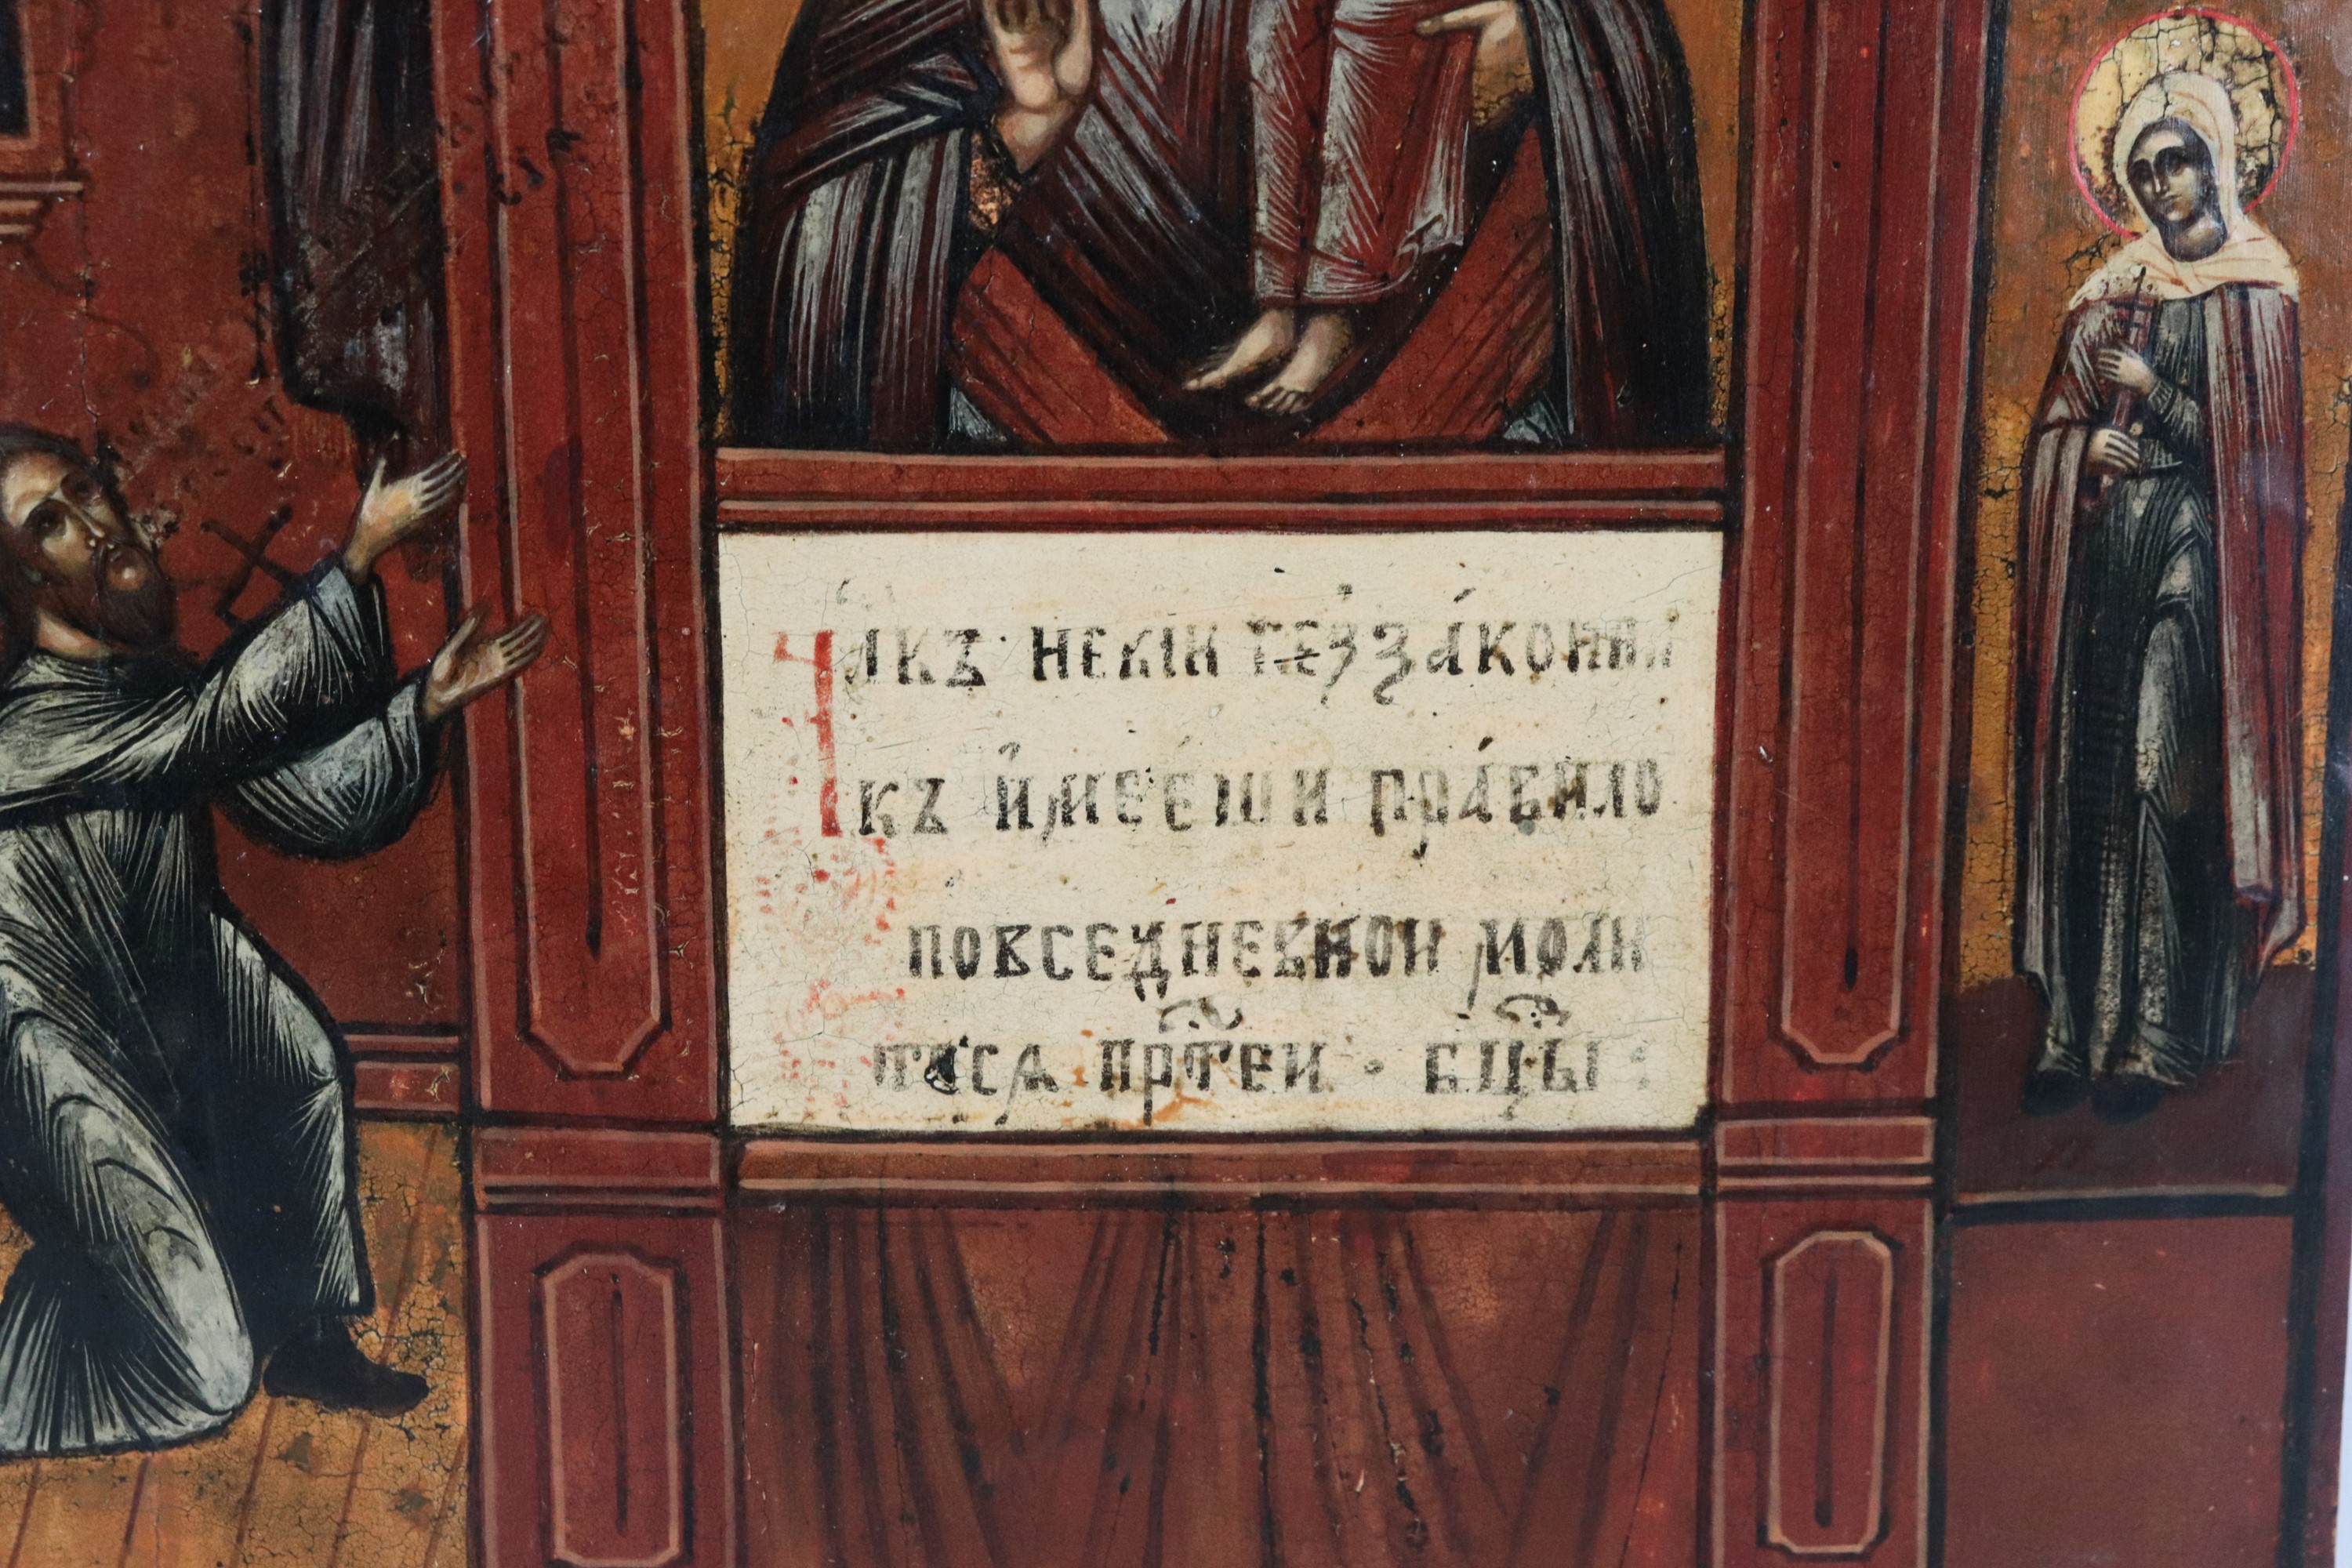 Члкъ некіи беззаконны
къ имееши правило
повседневнои моли
тися прⷭ҇теи · бцы :